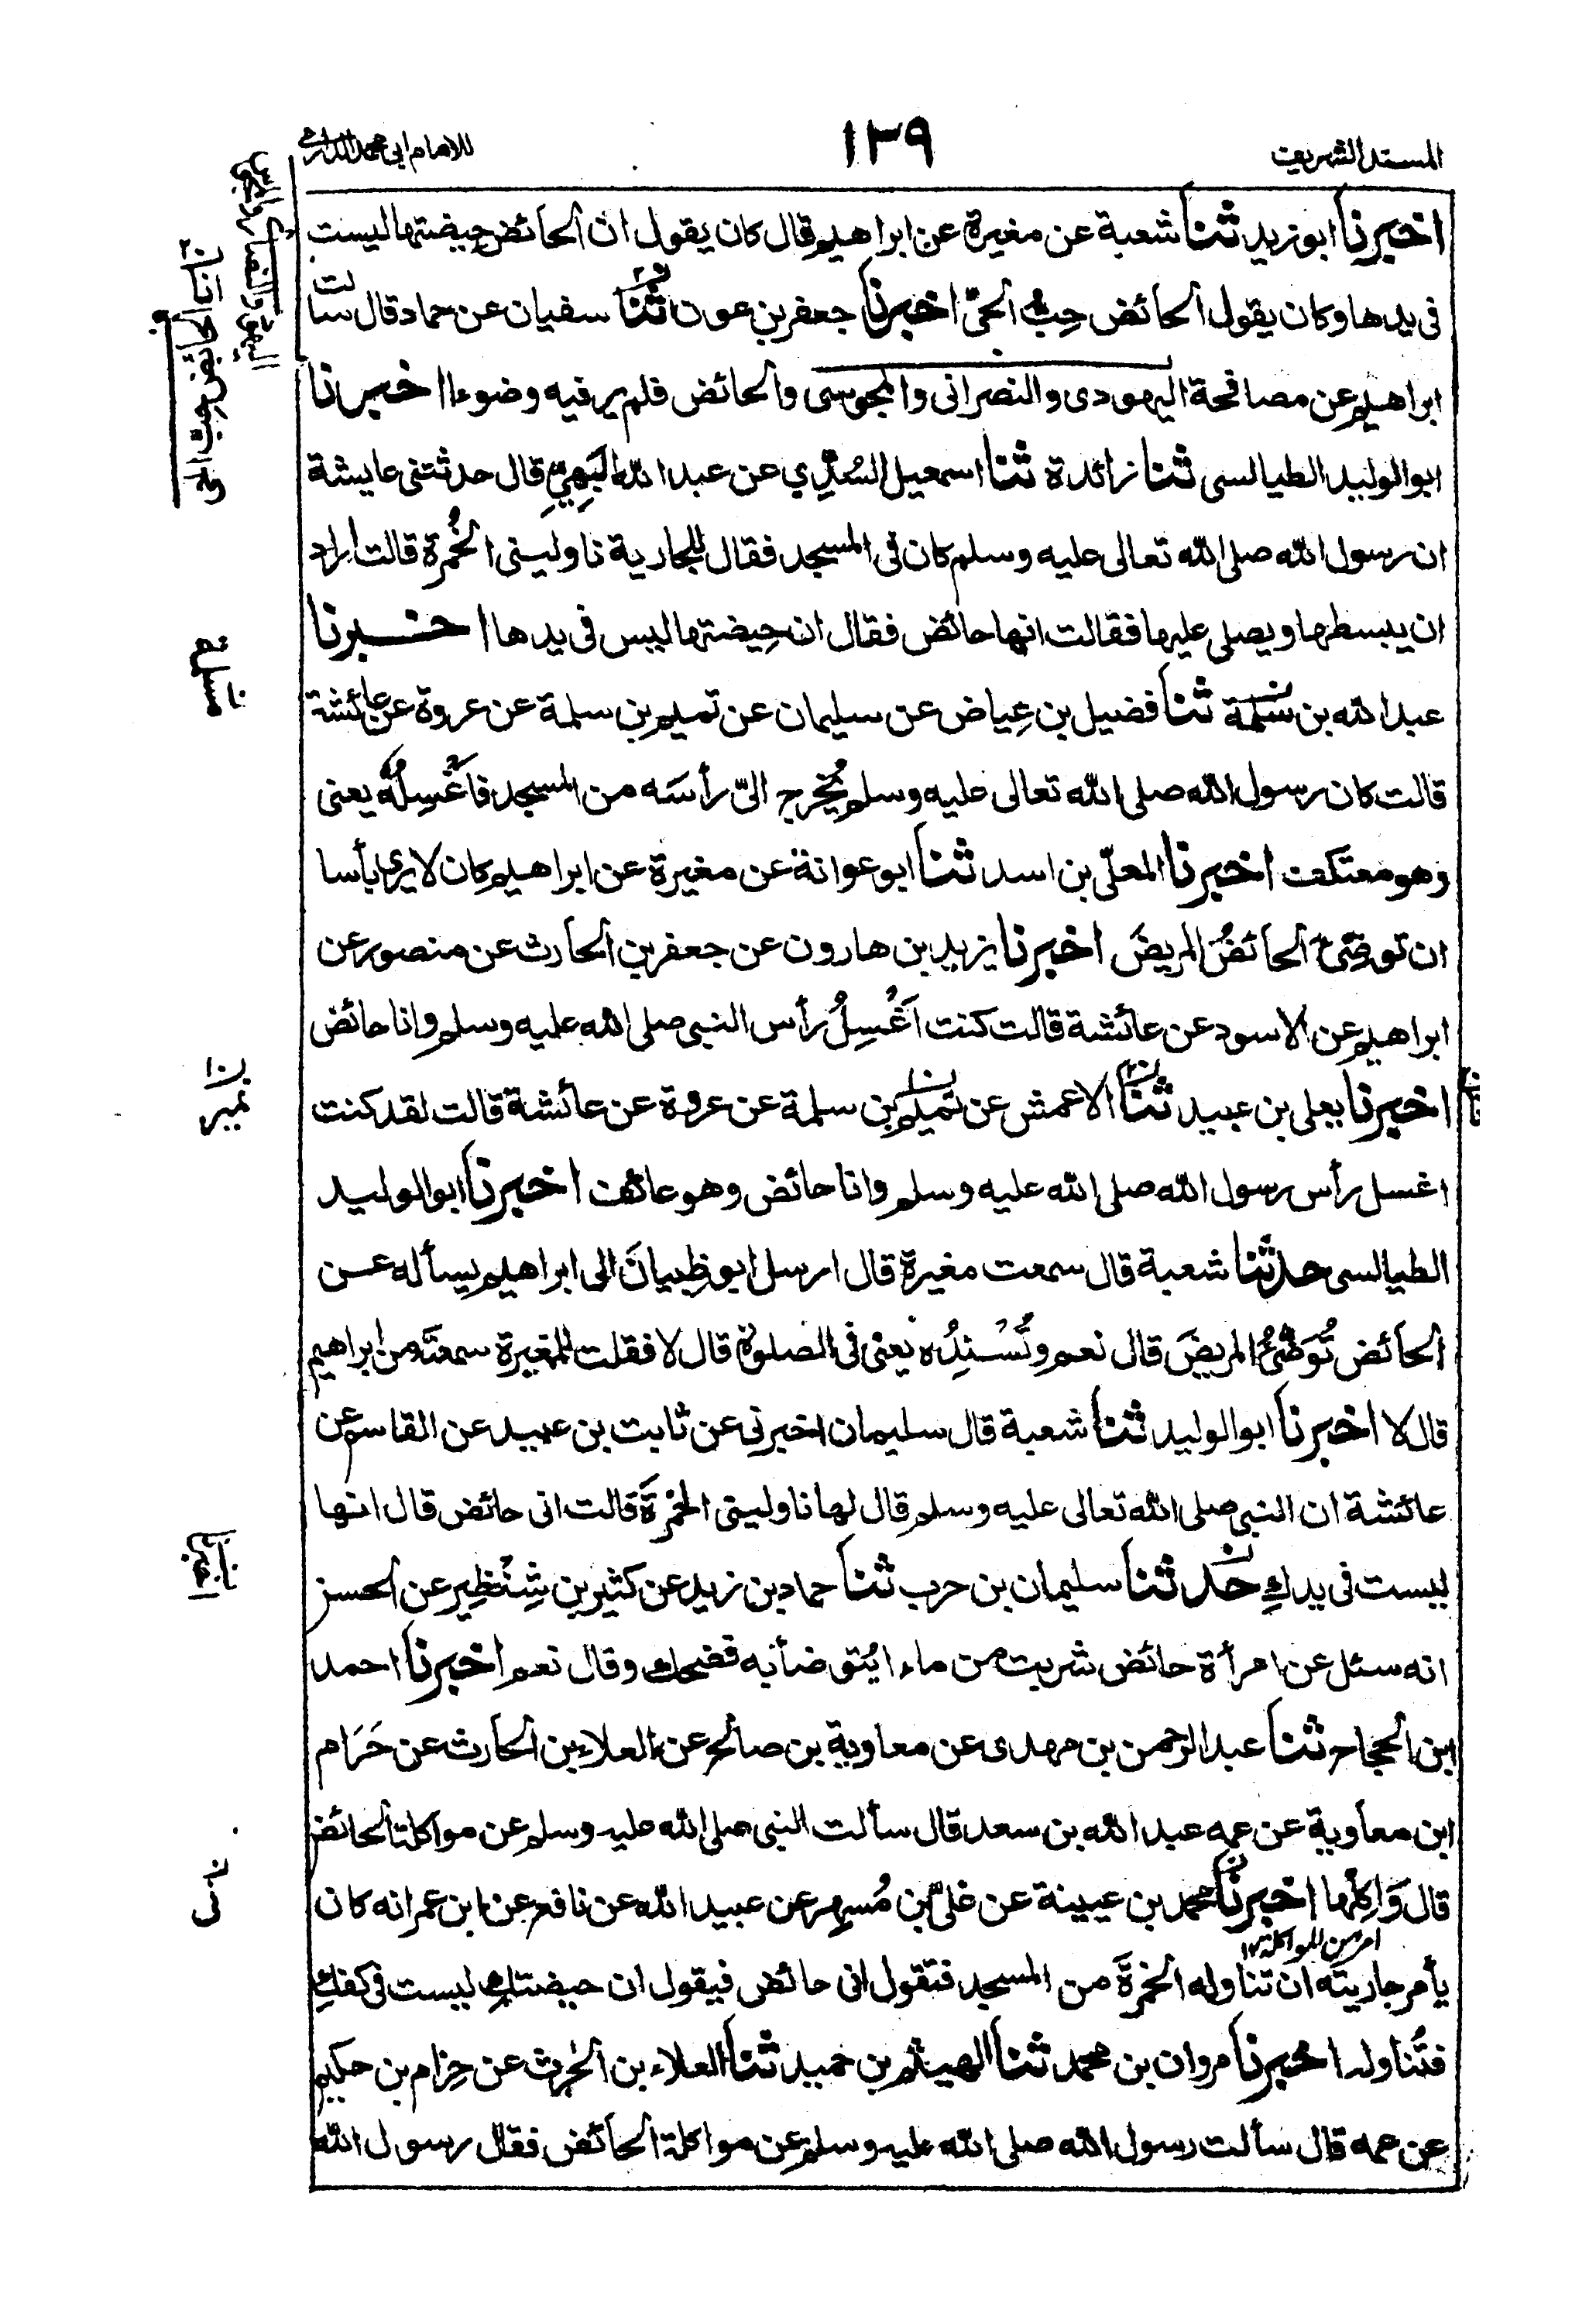 المسند الشريف
١٣٩
للامام ابى محمد الدارمى
اخبرنا ابوزيد ثنا شعبة عن مغيرة عن ابراهيم قال كان يقول ان الحائض حيضتها ليست
فى يدها وكان يقول الحائض حِبُّ الحىّ اخبرنا جعفر بن عون ثنا سفيان عن حماد قال سالت
ابراهيم عن مصافحة اليهودى والنصرانى والمجوسى والحائض فلم ير فيه وضوءا اخبرنا
ابو الوليد الطيالسى ثنا زائدة ثنا اسمعيل السُّدِّي عن عبد الله البَهِيِّ قال حدثتنى عايشة
ان رسول الله صلى الله تعالى عليه وسلم كان فى المسجد فقال للجارية ناولينى الخُمرة قالت اراد
ان يبسطها ويصلى عليها فقالت انها حائض فقال ان حِيضتها ليس فى يدها اخبرنا
عبد الله بن مسلمة ثنا فضيل بن عِياض عن سليمان عن تميم بن سلمة عن عروة عن عائشة
قالت كان رسول الله صلى الله تعالى عليه وسلم يُخرج الىّ رأسَه من المسجد فاَغْسِلُه يعنى
وهو معتكف اخبرنا المعلّى بن اسد ثنا ابو عوانة عن مغيرة عن ابراهيم كان لا يرى بأسا
ان توضئَ الحائضُ المريضَ اخبرنا يزيد بن هارون عن جعفر بن الحارث عن منصور عن
ابراهيم عن الاسود عن عائشة قالت كنت اَغْسِلُ رأس النبى صلى الله عليه وسلم وانا حائض
اخبرنا يعلى بن عبيد ثنا الاعمش عن تميم بن سلمة عن عروة عن عائشة قالت لقد كنت
اغسل رأس رسول الله صلى الله عليه وسلم وانا حائض وهو عاكف اخبرنا ابو الوليد
الطيالسى حدثنا شعبة قال سمعت مغيرة قال ارسل ابو ظبيانَ الى ابراهيم يسأله عن
الحائض تُوَضّئُ المريضَ قال نعم وتُسْنِدُه يعنى فى الصلوة قال لا فقلت للمغيرة سمعتَه من ابراهيم
قال لا اخبرنا ابو الوليد ثنا شعبة قال سليمان اخبرنى عن ثابت بن عبيد عن القاسم عن
عائشة ان النبى صلى الله تعالى عليه وسلم قال لها ناولينى الخمرَةَ قالت انى حائض قال انها
ليست فى يدكِ حدثنا سليمان بن حرب ثنا حماد بن زيد عن كثير بن شِنْظِير عن الحسن
انه سئل عن امرأة حائض شربت من ماء ايُتوضأ به فضحك وقال نعم اخبرنا احمد
ابن الحجاج ثنا عبد الرحمن بن مهدى عن معاوية بن صالح عن العلاء بن الحارث عن حَرَام
ابن معاوية عن عمه عبد الله بن سعد قال سألت النبى صلى الله عليه وسلم عن مواكلة الحائض
قال وَاكِلْها اخبرنا محمد بن عيينة عن علىّ بن مُسهِر عن عبيد الله عن نافع عن ابن عمر انه كان
امر من المواكلة ١٢
يأمر جاريته ان تناوله الخمرَةَ من المسجد فتقول انى حائض فيقول ان حيضتكِ ليست فى كفكِ
فتُناوله اخبرنا مروان بن محمد ثنا الهيثم بن حميد ثنا العلاء بن الحٰرث عن حِزام بن حكيم
عن عمه قال سألت رسول الله صلى الله عليه وسلم عن مواكلة الحائض فقال رسول الله